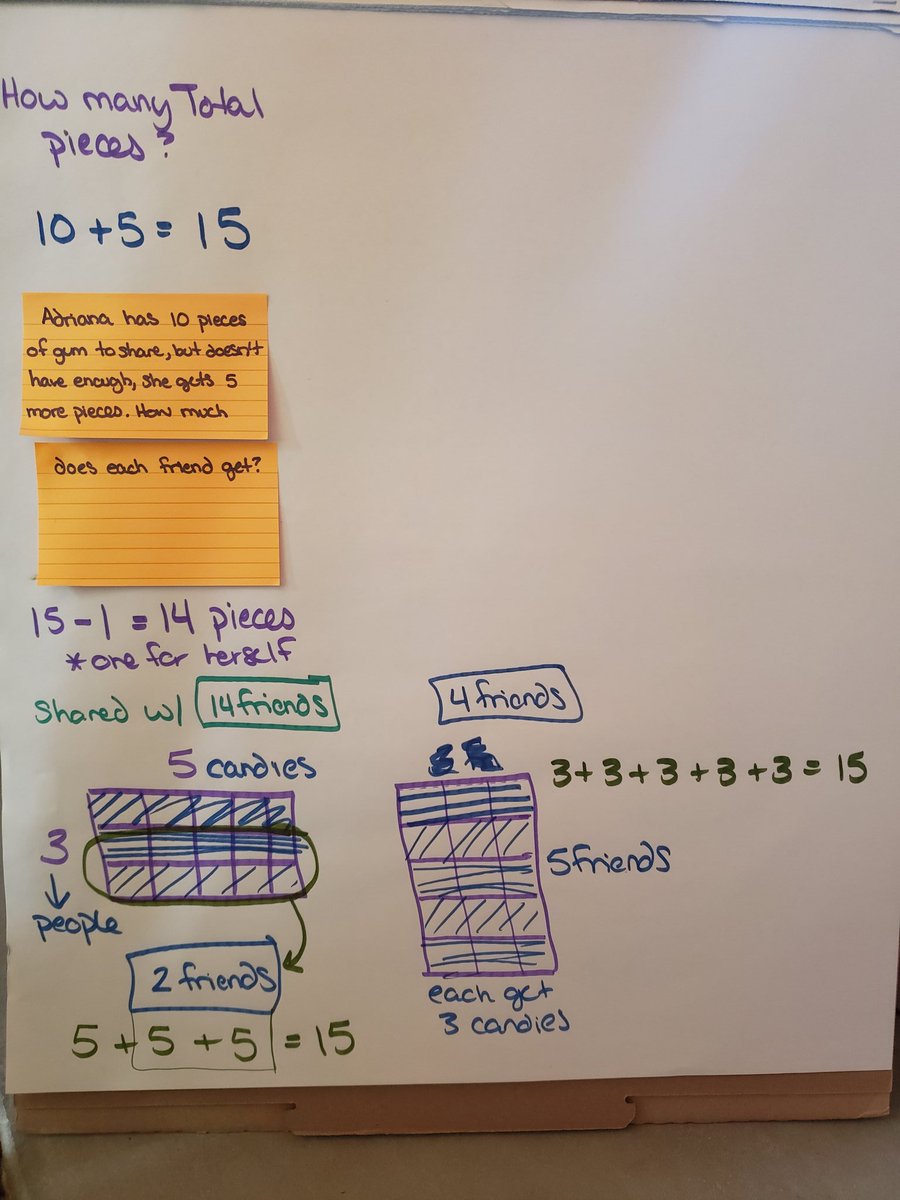 How many Total
pieces?
10 + 5 = 15
Adriana has 10 pieces
of gum to share, but doesn't
have enough, she gets 5
more pieces. How much
does each friend get?
15 - 1 = 14 pieces
* one for herself
Shared w/ 14 friends
5 candies
3
people
2 friends
5 + 5 + 5 = 15
4 friends
3 + 3 + 3 + 3 + 3 = 15
5 friends
each get
3 candies